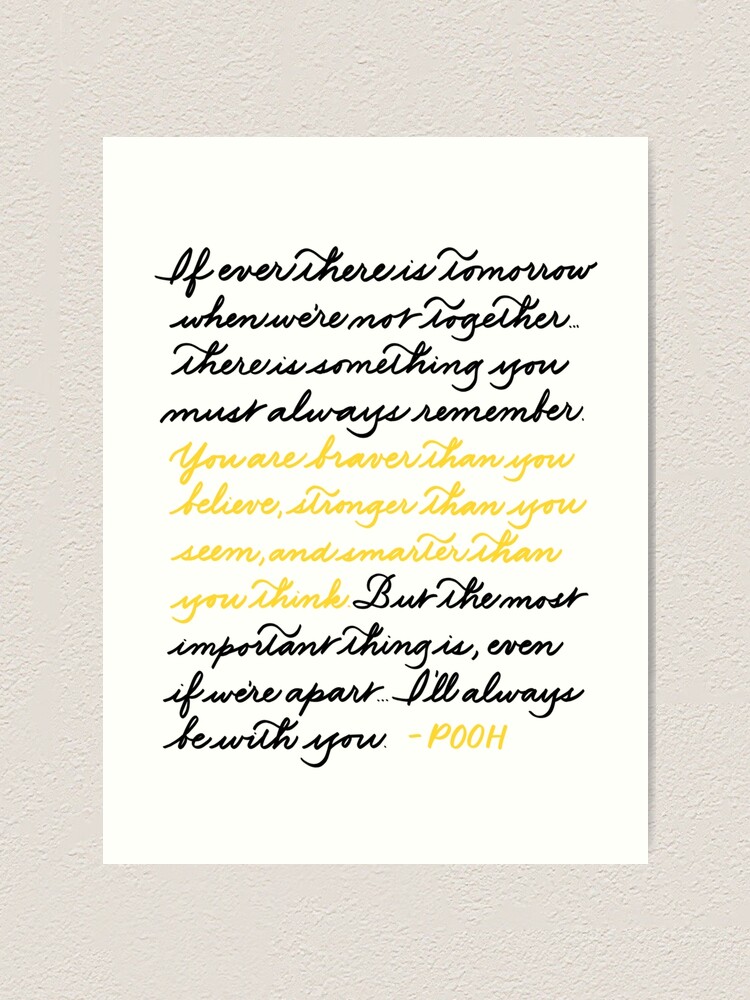 If ever there is tomorrow
when we're not together...
there is something you
must always remember.
You are braver than you
believe, stronger than you
seem, and smarter than
you think. But the most
important thing is, even
if we're apart... I'll always
be with you. -POOH